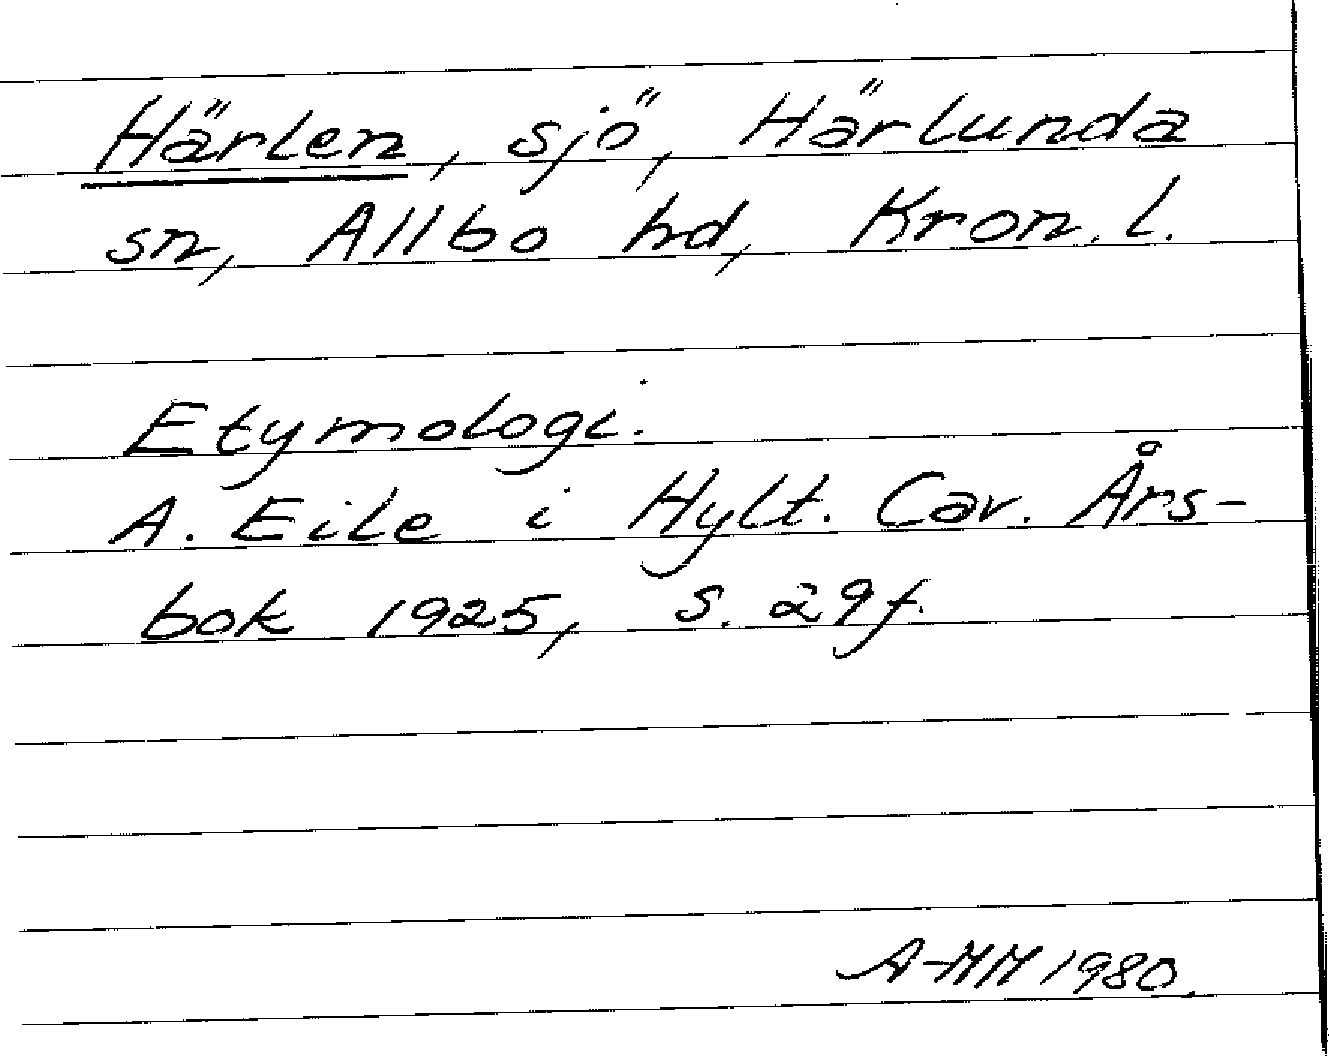 Härlen, sjö, Härlunda
sn, Allbo hd, Kron. l.
Etymologi.
A. Eile i Hylt. Cav. Års-
bok 1925, s. 29f.
A-MM 1980.